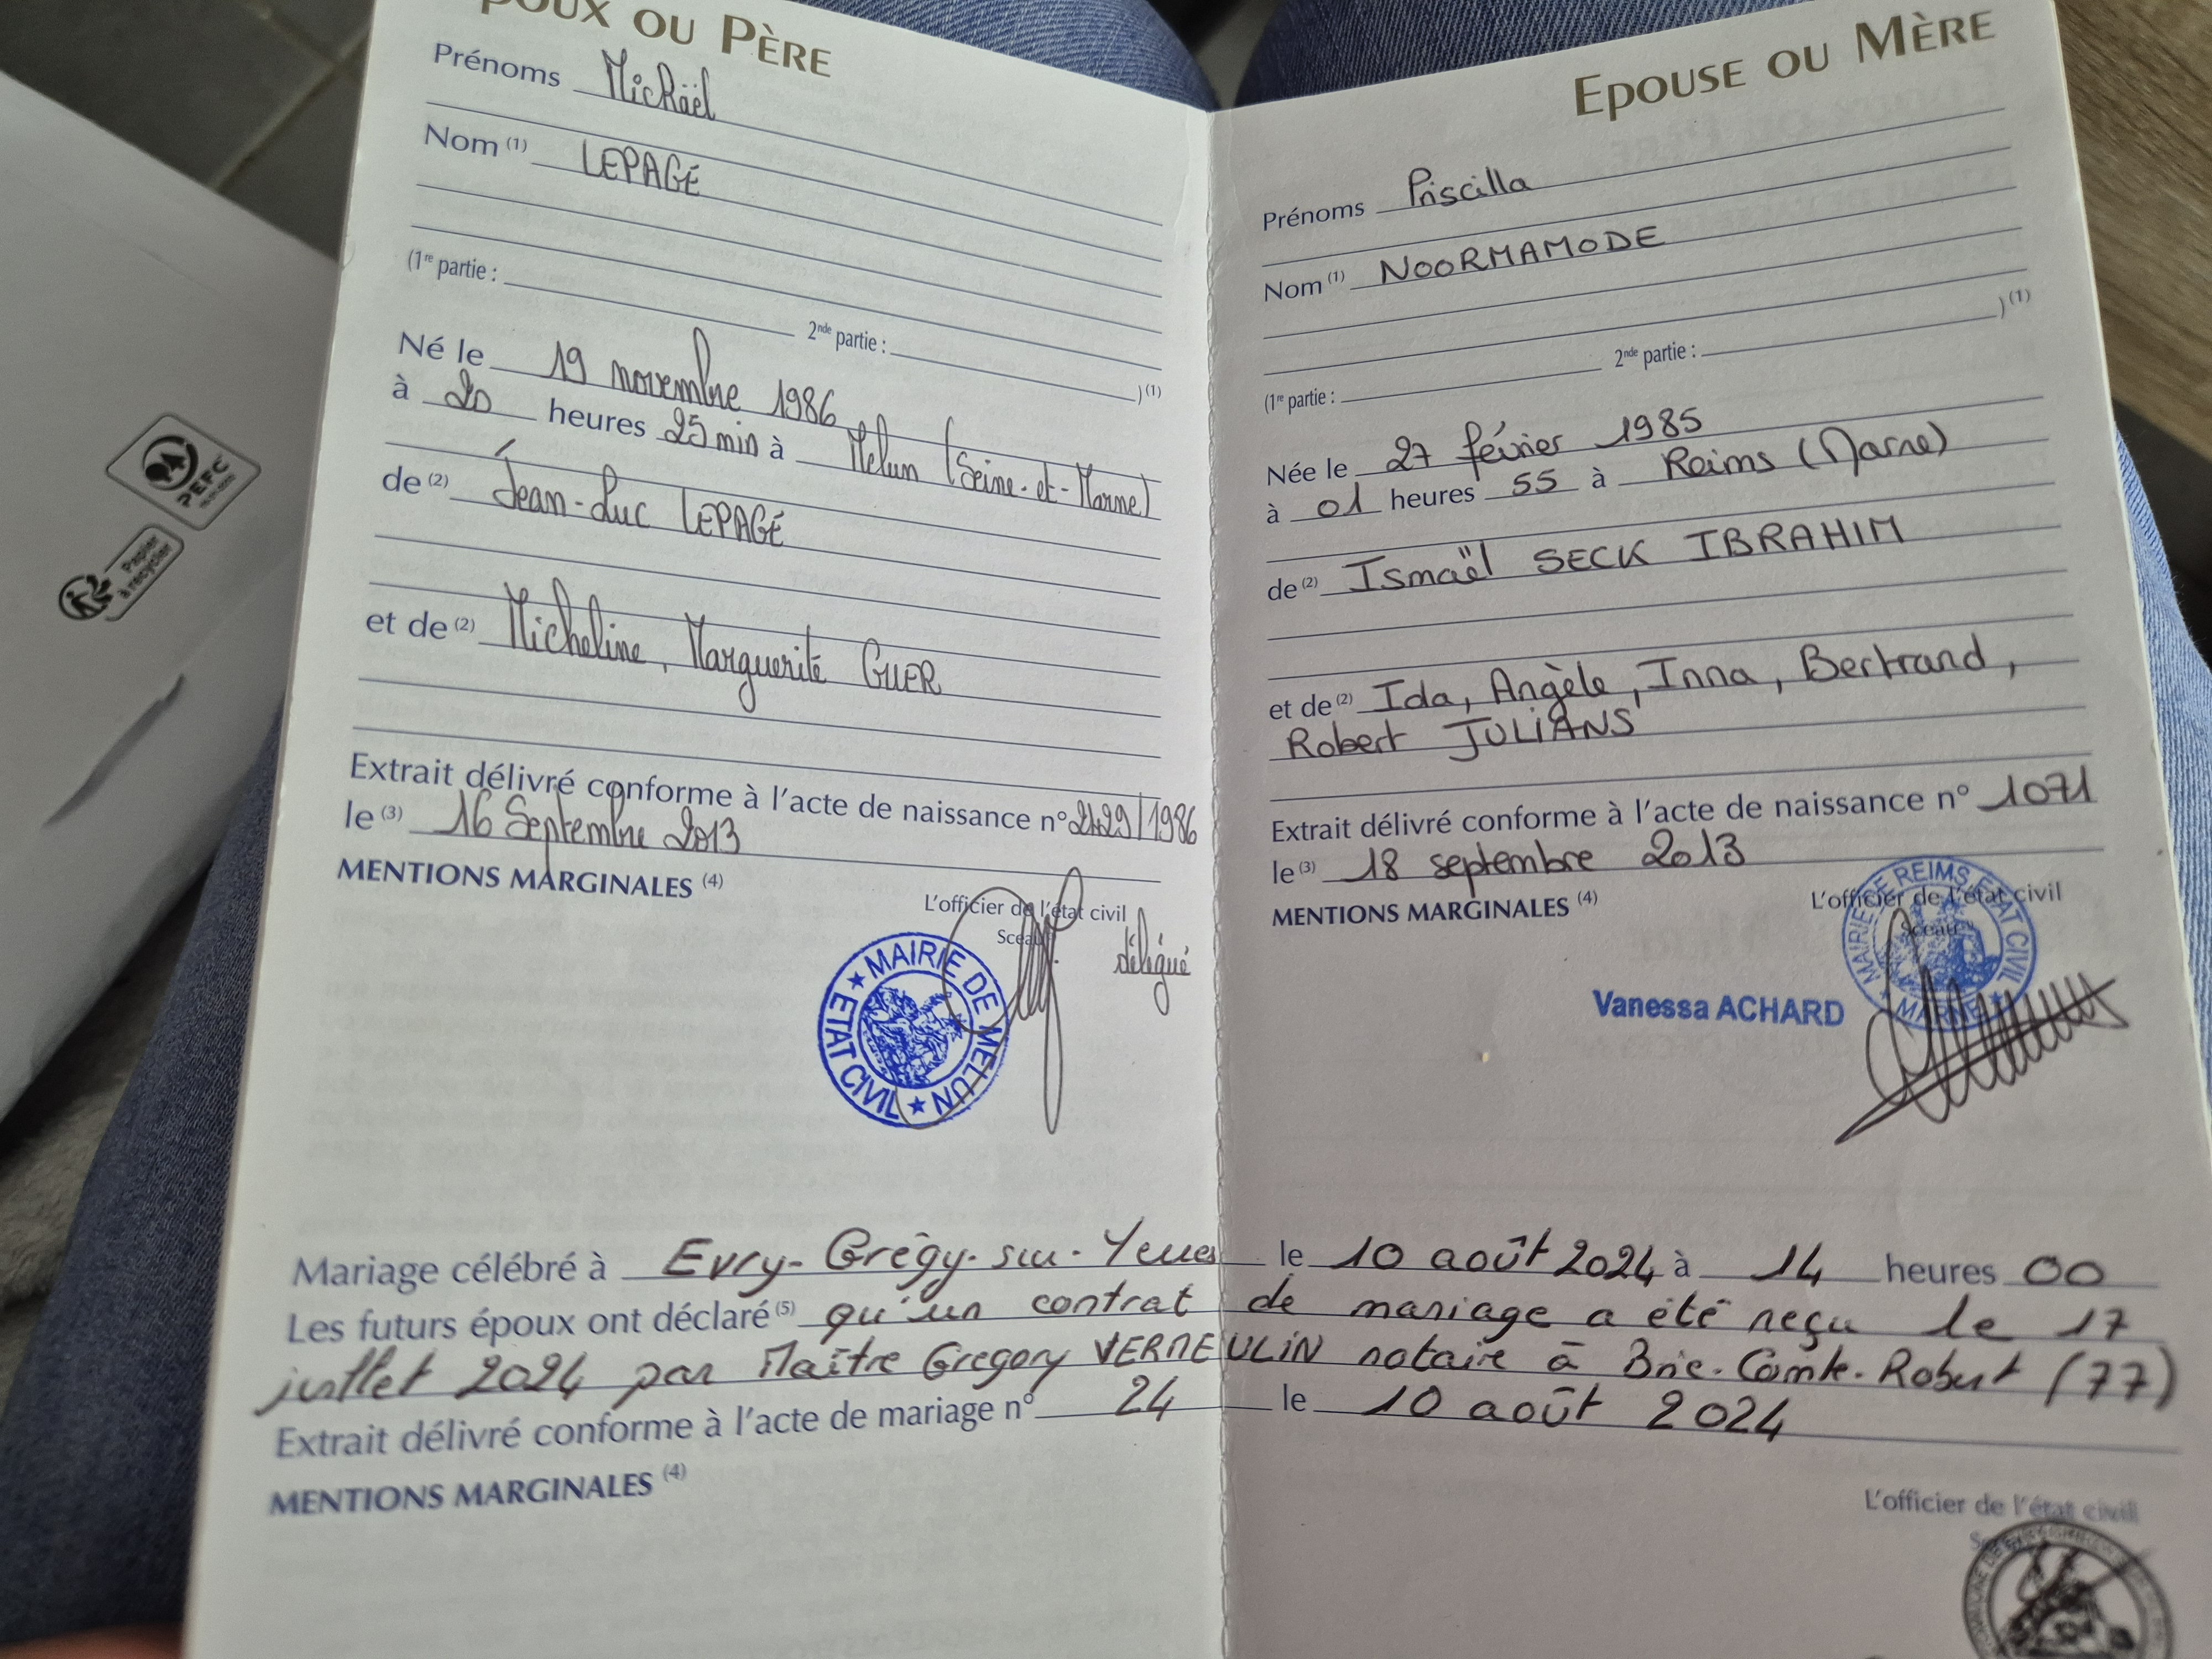 POUX OU PÈRE
Prénoms Mickaël
Nom (1) LEPAGE
(1re partie : 2nde partie : ) (1)
Né le 19 novembre 1986
à 20 heures 25 min à Melun (Seine-et-Marne)
de (2) Jean-Luc LEPAGE
et de (2) Micheline, Marguerite GUER
Extrait délivré conforme à l'acte de naissance n° 2429/1986
le (3) 16 Septembre 2013
MENTIONS MARGINALES (4)
L'officier de l'état civil
Sceau
délégué
★ MAIRIE DE MELUN ★ ETAT CIVIL
EPOUSE OU MÈRE
Prénoms Priscilla
Nom (1) NOORMAMODE
(1re partie : 2nde partie : ) (1)
Née le 27 février 1985
à 01 heures 55 à Reims (Marne)
de (2) Ismaël SECK IBRAHIM
et de (2) Ida, Angèle, Inna, Bertrand,
Robert JULIANS
Extrait délivré conforme à l'acte de naissance n° 1071
le (3) 18 septembre 2013
MENTIONS MARGINALES (4)
L'officier de l'état civil
Sceau
MAIRIE DE REIMS ETAT CIVIL ★ MARNE ★
Vanessa ACHARD
Mariage célébré à Evry-Grégy-sur-Yerres le 10 août 2024 à 14 heures 00
Les futurs époux ont déclaré (5) qu'un contrat de mariage a été reçu le 17
juillet 2024 par Maître Gregory VERNEULIN notaire à Brie-Comte-Robert (77)
Extrait délivré conforme à l'acte de mariage n° 24 le 10 août 2024
MENTIONS MARGINALES (4)
L'officier de l'état civil
PEFC
Papier
à recycler